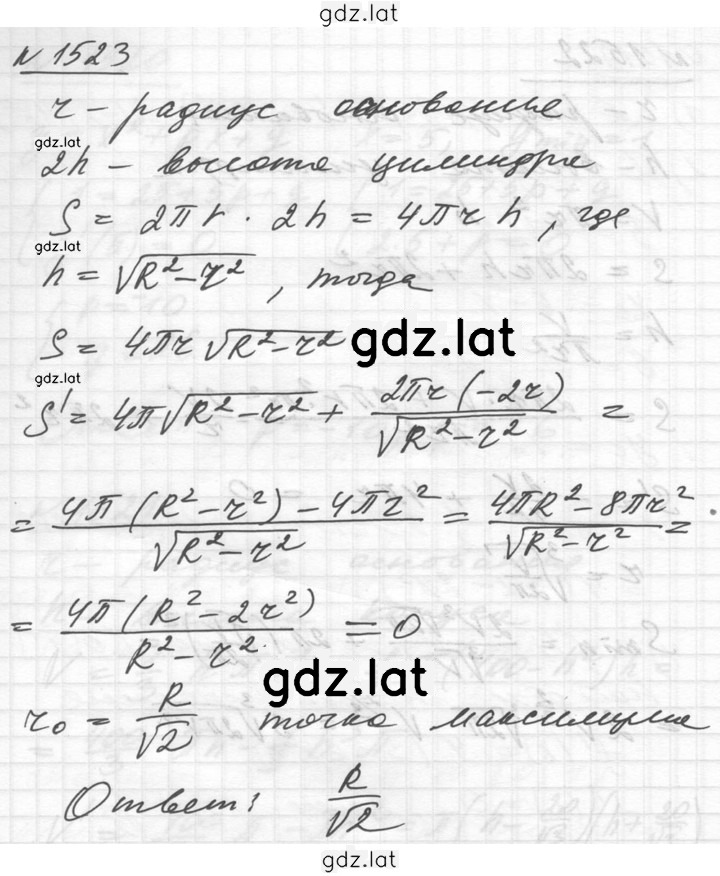 gdz.lat
№ 1523
r – радиус основание
gdz.lat
2h – высота цилиндра
S = 2πr · 2h = 4πrh, где
gdz.lat
h = √(R² – r²), тогда
S = 4πr√(R² – r²)
gdz.lat
gdz.lat
S' = 4π√(R² – r²) + 2πr(–2r)/√(R² – r²) =
= (4π(R² – r²) – 4πr²)/√(R² – r²) = (4πR² – 8πr²)/√(R² – r²) =
= 4π(R² – 2r²)/(R² – r²) = 0
gdz.lat
r₀ = R/√2 точка максимума
Ответ: R/√2
gdz.lat